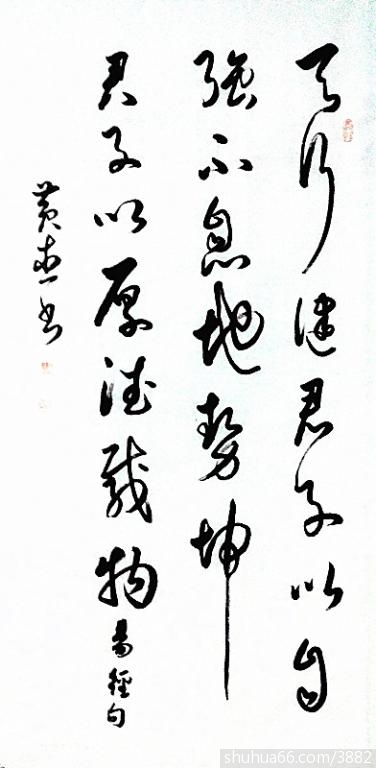 天行健君子以自
强不息地势坤
君子以厚德载物易經句
黄書
shuhua66.com/3882